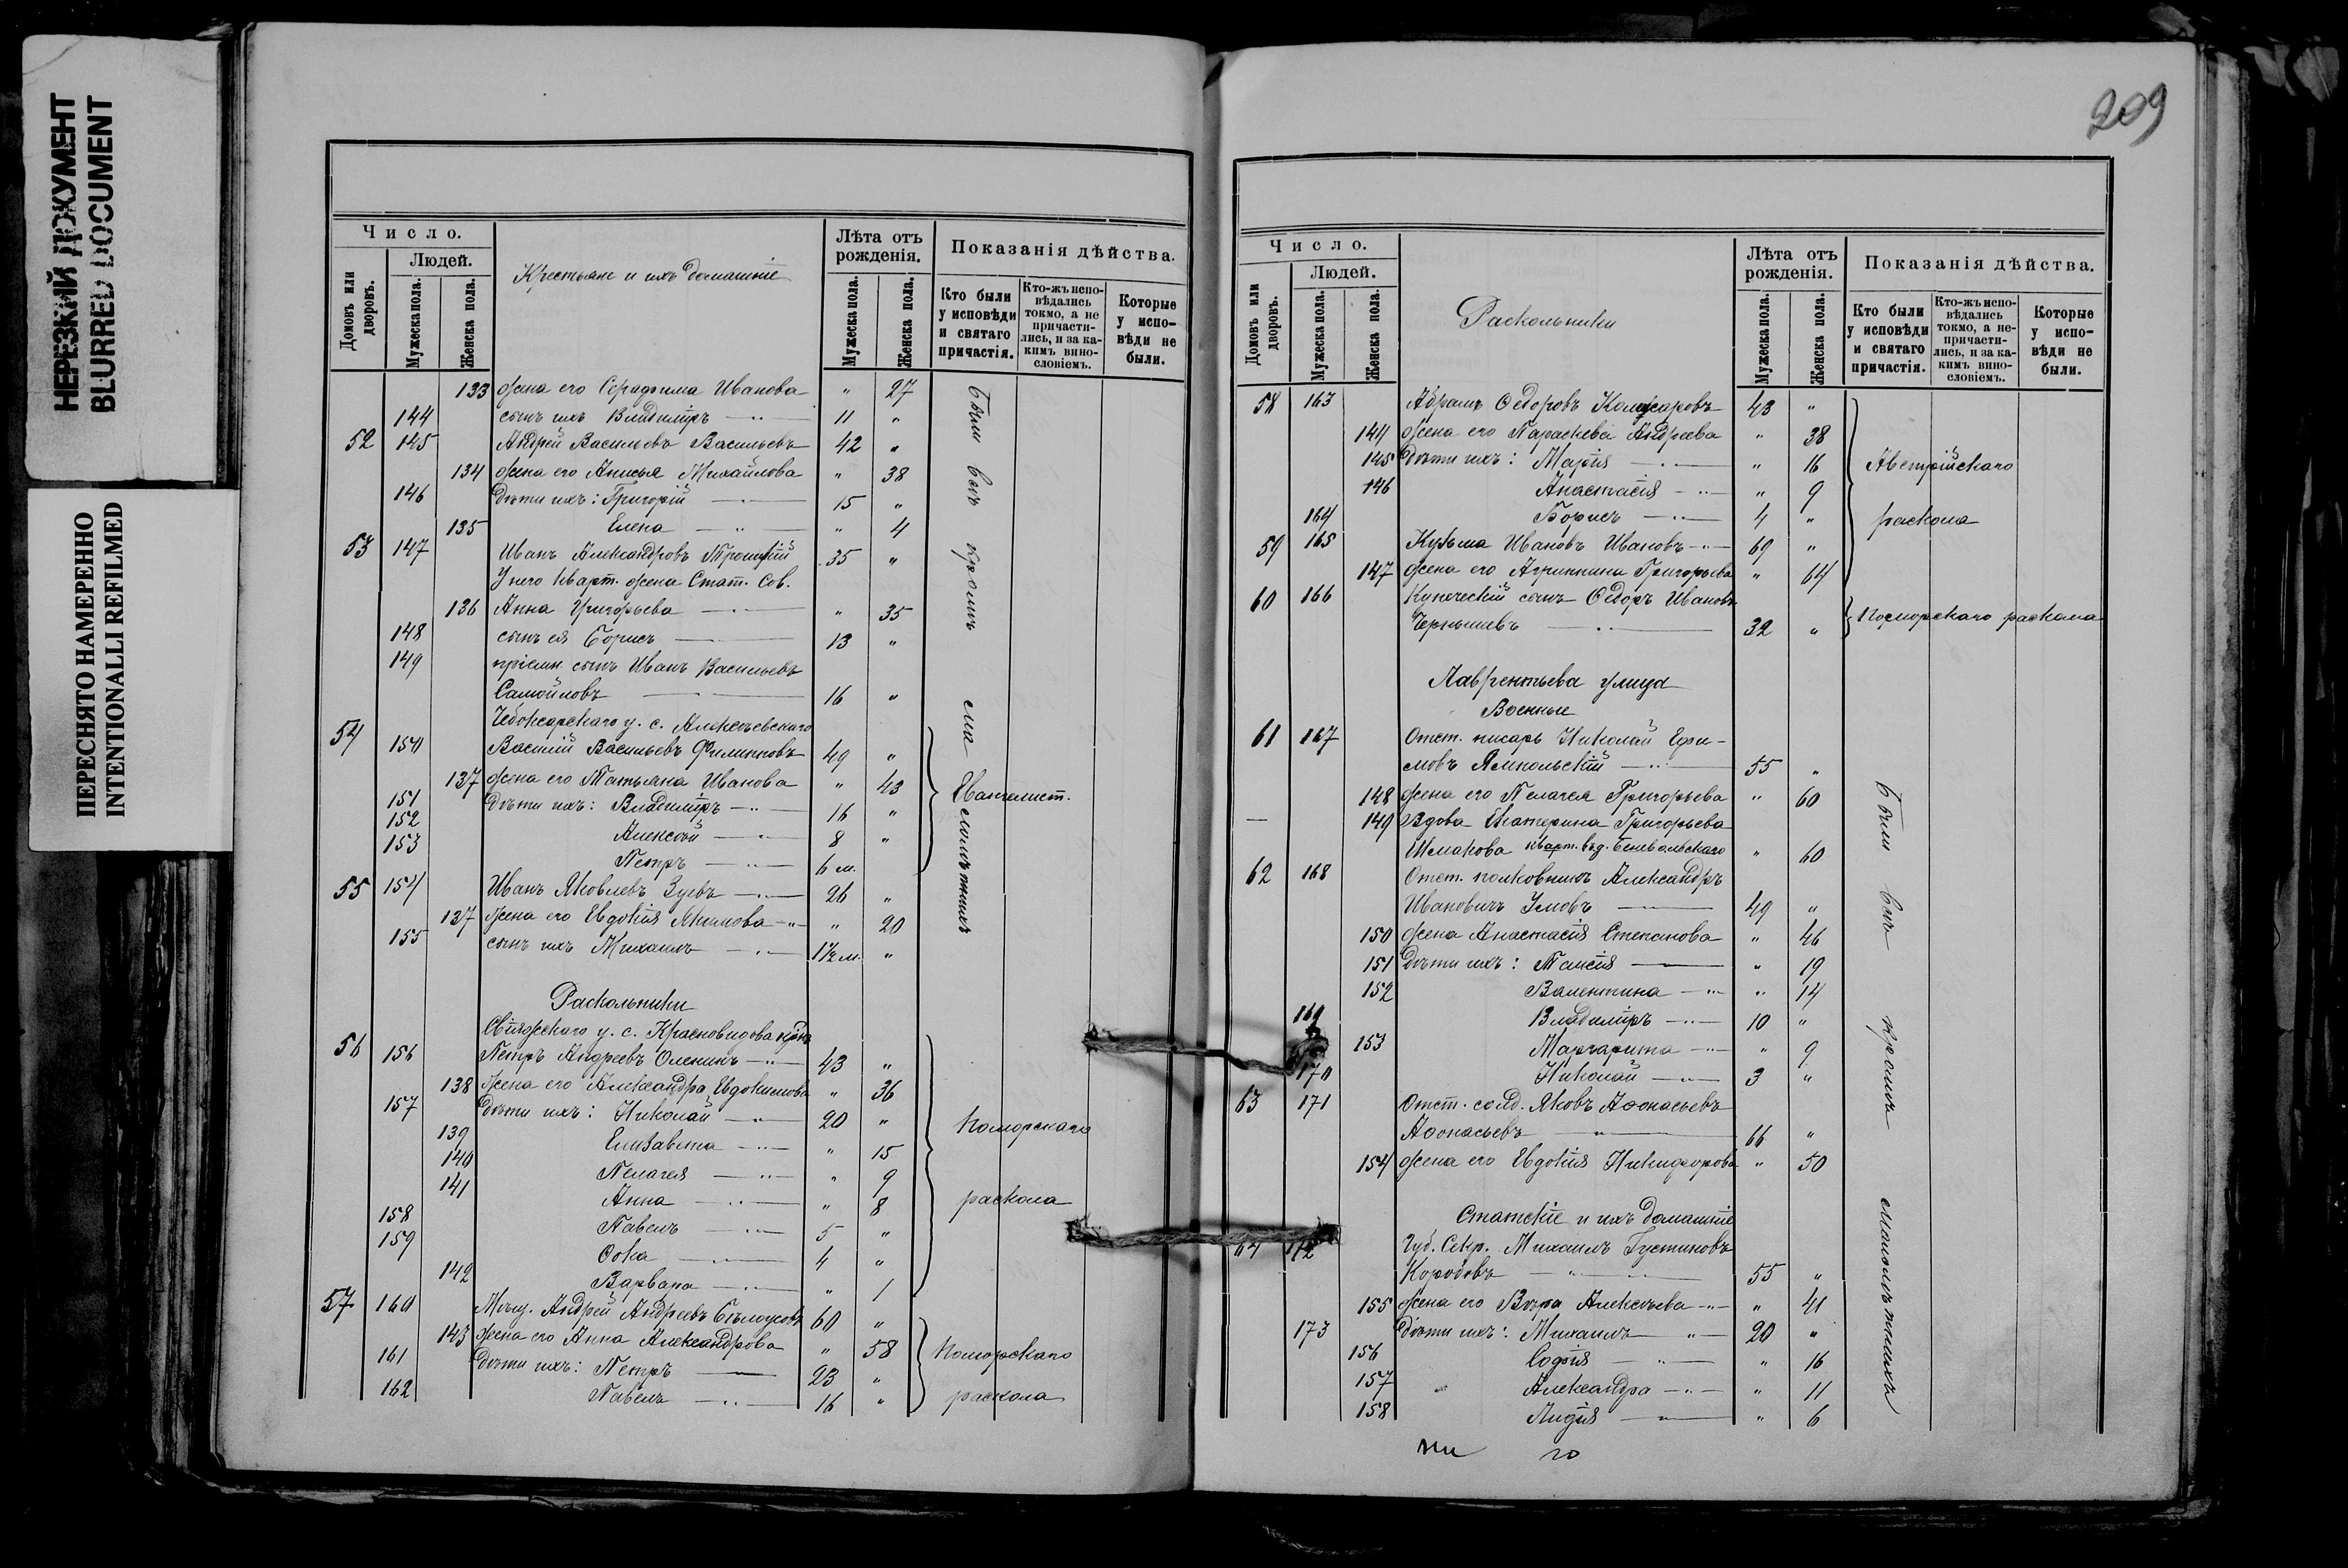 НЕРЕЗКИЙ ДОКУМЕНТ
BLURRED DOCUMENT
ПЕРЕСНЯТО НАМЕРЕННО
INTENTIONALLI REFILMED
Число.
Домовъ или дворовъ.
Людей.
Мужеска пола.
Женска пола.
Крестьяне и ихъ домашніе
Лѣта отъ рожденія.
Мужеска пола.
Женска пола.
Показанія дѣйства.
Кто были у исповѣди и святаго причастія.
Кто-жъ исповѣдались токмо, а не причастились, и за какимъ винословіемъ.
Которые у исповѣди не были.
133 жена его Серафима Иванова " 27
144 сынъ ихъ Владиміръ — " — 11 "
52 145 Андрей Васильевъ Васильевъ 42 "
134 жена его Анисья Михайлова " 38
146 дѣти ихъ: Григорій — 15 "
135 Елена — " — " 4
53 147 Иванъ Александровъ Троицкій 35 "
У него кварт. жена Стат. Сов.
136 Анна Григорьева — " 35
148 сынъ ея Борисъ — 13 "
149 пріемн. сынъ Иванъ Васильевъ
Самойловъ — 16 "
Чебоксарскаго у. с. Алексѣевскаго
54 150 Василій Васильевъ Филипповъ 49 "
137 жена его Татьяна Иванова " 43
151 дѣти ихъ: Владиміръ — " — 16 "
152 Алексѣй — 8 "
153 Петръ — " — 6 м.
Евангелист.
55 154 Иванъ Яковлевъ Зуевъ — 26 "
137 жена его Евдокія Якимова — " — " 20
155 сынъ ихъ Михаилъ — " — 1½ м. "
Были всѣ кромѣ малолѣтнихъ
Раскольники
Свіяжскаго у. с. Красновидова кр-нъ
56 156 Петръ Андреевъ Оленинъ — " — 43 "
138 жена его Александра Евдокимова " 36
157 дѣти ихъ: Николай — " 20 "
139 Елизавета — " — " 15
140 Пелагея — " — " 9
141 Анна — " — " 8
158 Павелъ — " — 5 "
159 Ѳока — 4 "
142 Варвара — " — " 1
Поморскаго
раскола
57 160 Мѣщ. Андрей Андреевъ Бѣлоусовъ 60 "
143 жена его Анна Александрова " 58
161 дѣти ихъ: Петръ — 23 "
162 Павелъ — " — 16 "
Поморскаго
раскола
209
Число.
Домовъ или дворовъ.
Людей.
Мужеска пола.
Женска пола.
Раскольники
Лѣта отъ рожденія.
Мужеска пола.
Женска пола.
Показанія дѣйства.
Кто были у исповѣди и святаго причастія.
Кто-жъ исповѣдались токмо, а не-причастились, и за какимъ винословіемъ.
Которые у исповѣди не были.
58 163 Абрамъ Ѳедоровъ 43 "
144 жена его Параскева Андреева " 38
145 дѣти ихъ: Марія — " 16
146 Анастасія — " — " 9
164 Борисъ — " — 4 "
59 165 Кузьма Ивановъ Ивановъ — " — 69 "
147 жена его Агриппина Григорьева " 64
Австрійскаго
раскола
60 166 Купеческій сынъ Ѳедоръ Ивановъ
Чернышевъ — 32 "
Поморскаго раскола
Лаврентьева улица
Военные
61 167 Отст. писарь Николай Ефи-
мовъ Ямпольскій — " — 55 "
148 жена его Пелагея Григорьева " 60
— 149 Вдова Екатерина Григорьева
Шмакова кварт. " 60
62 168 Отст. полковникъ Александръ
Ивановичъ Умовъ — 49 "
150 жена Анастасія Степанова " 46
151 дѣти ихъ: Таисія — " 19
152 Валентина — " — " 14
169 Владиміръ — " — 10 "
153 Маргарита — " — " 9
170 Николай — " — 3 "
63 171 Отст. солд. Яковъ Аѳонасьевъ
Аѳонасьевъ — " — 66 "
154 жена его Евдокія Никифорова " 50
Статскіе и ихъ домашніе
64 172 Губ. Секр. Михаилъ Густиновъ
Коробовъ — " — 55 "
155 жена его Вѣра Алексѣева — " — " 41
173 дѣти ихъ: Михаилъ " — 20 "
156 Софія — " — " 16
157 Александра — " — " 11
158 Лидія — " — " 6
Были всѣ кромѣ малолѣтнихъ